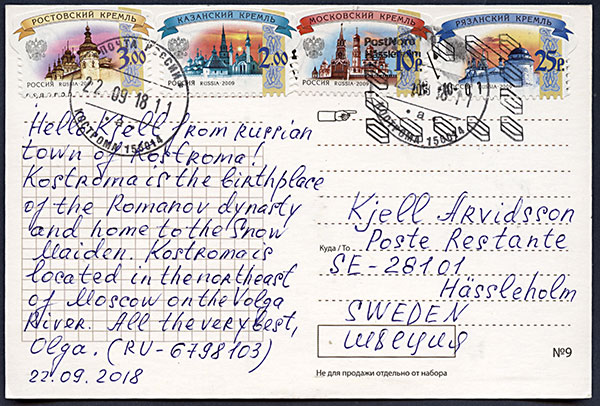 РОСТОВСКИЙ КРЕМЛЬ
КАЗАНСКИЙ КРЕМЛЬ
МОСКОВСКИЙ КРЕМЛЬ
РЯЗАНСКИЙ КРЕМЛЬ
3.00
2.00
10р
25р.
РОССИЯ RUSSIA·2009
РОССИЯ RUSSIA·2009
РОССИЯ RUSSIA·2009
ПОЧТА РОССИИ
22.09.18 11
·а·
КОСТРОМА 156014
PostNord
Hässleholm
18 11
·а·
КОСТРОМА 156014
Hello Kjell from russian
town of Kostroma!
Kostroma is the birthplace
of the Romanov dynasty
and home to the Snow
Maiden. Kostroma is
located in the northeast
of Moscow on the Volga
River. All the very best,
Olga. (RU-6798103)
22.09.2018
Kjell Arvidsson
Куда / To
Poste Restante
SE-28101
Hässleholm
SWEDEN
Швеция
№9
Не для продажи отдельно от набора